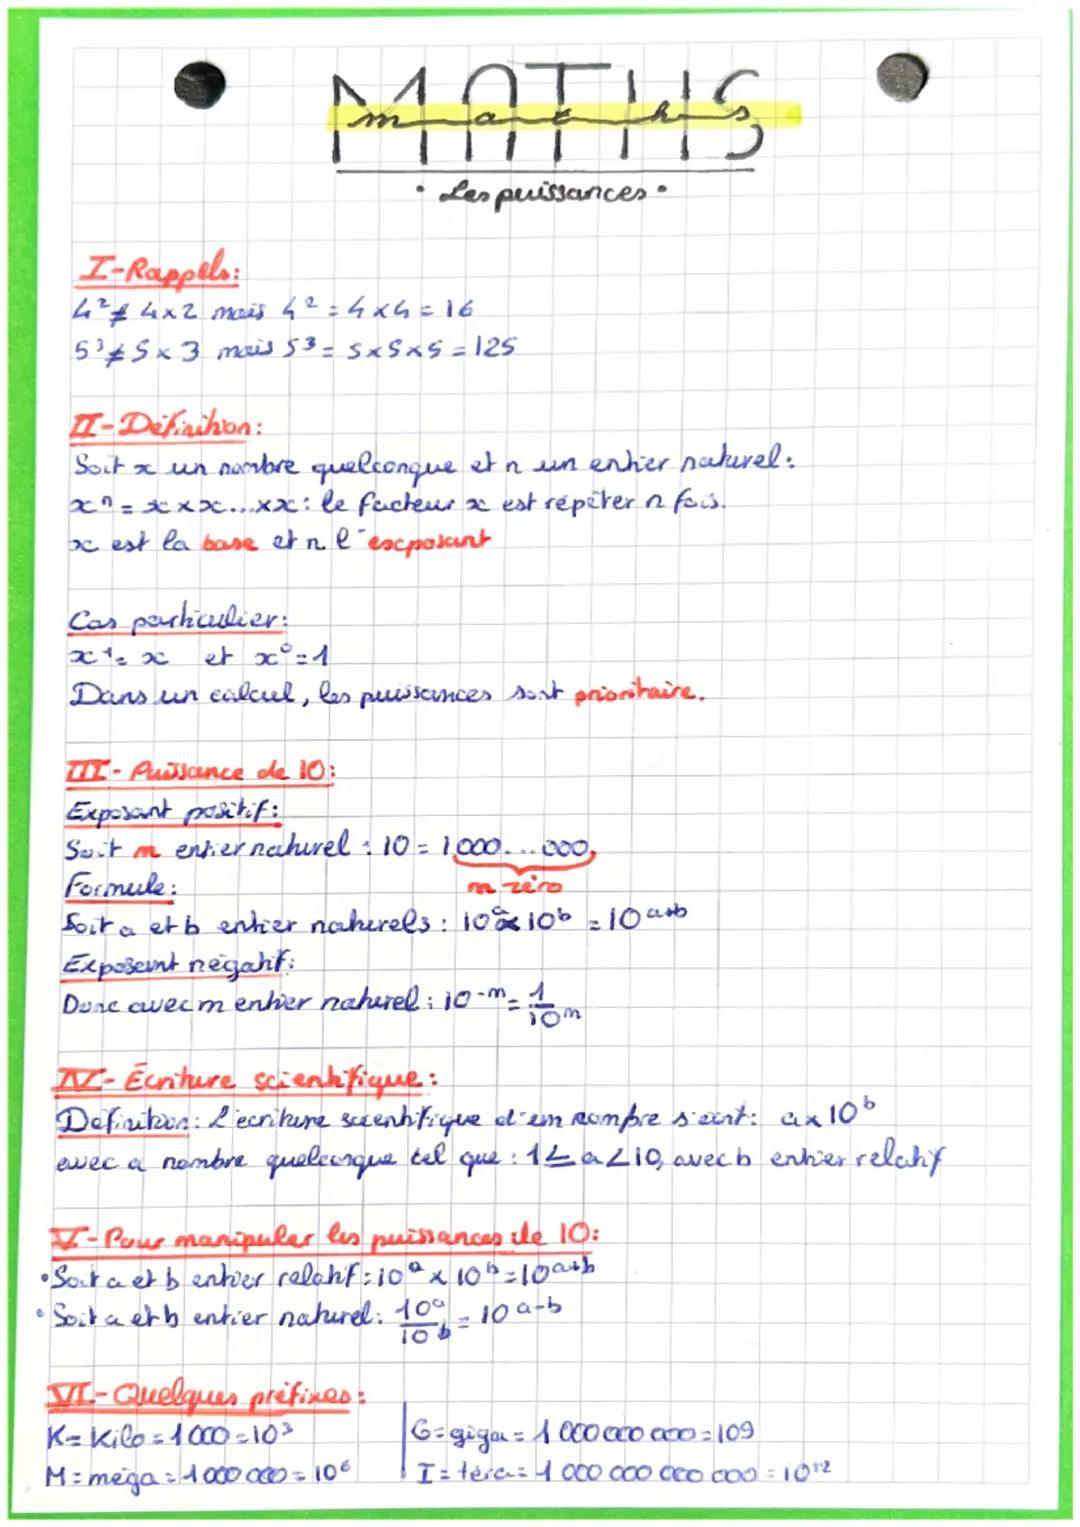 MATHS
maths
• Les puissances •
I-Rappels:
4² ≠ 4x2 mais 4² = 4x4 = 16
5³ ≠ 5x3 mais 5³ = 5x5x5 = 125
II-Définition:
Soit x un nombre quelconque et n un entier naturel:
xⁿ = x x x...x x: le facteur x est répéter n fois.
x est la base et n l'exposant
Cas particulier:
x¹ = x et x⁰ = 1
Dans un calcul, les puissances sont prioritaire.
III- Puissance de 10:
Exposant positif:
Soit m entier naturel : 10 = 1 000...000,
m zéro
Formule:
Soit a et b entier naturels : 10ᵃ x 10ᵇ = 10ᵃ⁺ᵇ
Exposant négatif:
Donc avec m entier naturel : 10⁻ᵐ = 1/10ᵐ
IV- Écriture scientifique:
Définition: L'écriture scientifique d'un nombre s'écrit: a x 10ᵇ
avec a nombre quelconque tel que : 1 ≤ a < 10, avec b entier relatif
V- Pour manipuler les puissances de 10:
• Soit a et b entier relatif : 10ᵃ x 10ᵇ = 10ᵃ⁺ᵇ
• Soit a et b entier naturel: 10ᵃ/10ᵇ = 10ᵃ⁻ᵇ
VI- Quelques préfixes:
K = Kilo = 1 000 = 10³
M = méga = 1 000 000 = 10⁶
G = giga = 1 000 000 000 = 109
T = téra = 1 000 000 000 000 = 10¹²